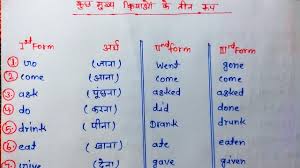 कुछ मुख्य क्रियाओं के तीन रूप
Ist Form अर्थ IInd Form IIIrd Form
1 Go (जाना) Went gone
2 come (आना) came come
3 ask (पूछना) asked asked
4 do (करना) did done
5 drink (पीना) Drank drunk
6 eat (खाना) ate eaten
7 give (देना) gave given